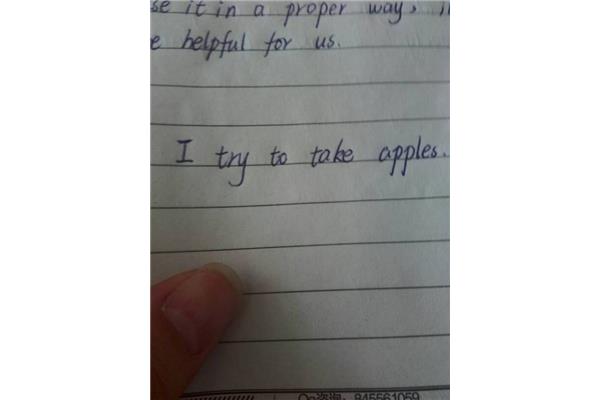 se it in a proper way,
e helpful for us.
I try to take apples.
845561059